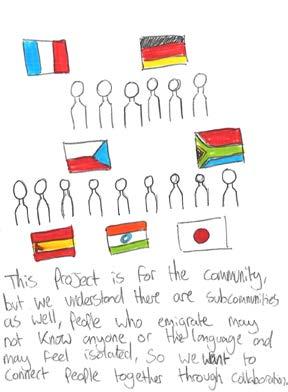 This Project is for the community,
but we understand there are subcommunities
as well, People who emigrate may
not know anyone or the language and
may feel isolated, So we want to
connect people together through collaboration